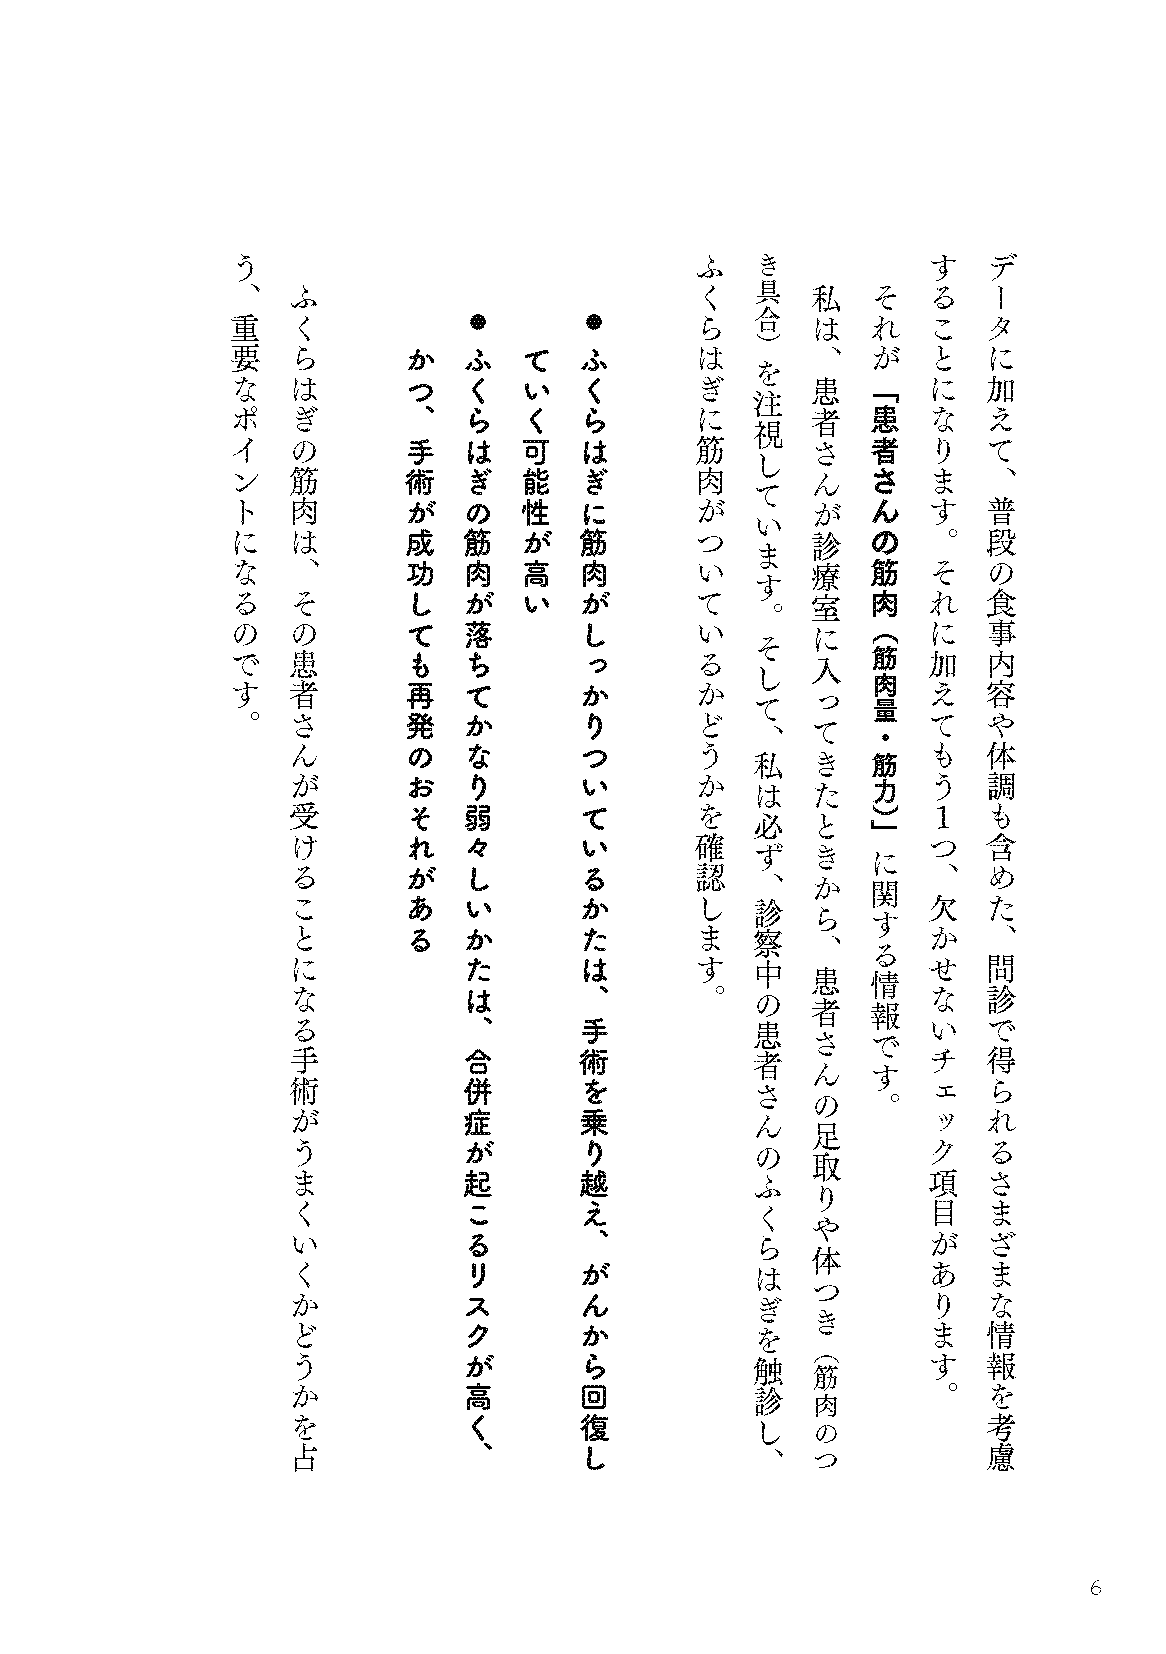 データに加えて、普段の食事内容や体調も含めた、問診で得られるさまざまな情報を考慮
することになります。それに加えてもう1つ、欠かせないチェック項目があります。
それが「患者さんの筋肉(筋肉量・筋力)」に関する情報です。
私は、患者さんが診療室に入ってきたときから、患者さんの足取りや体つき(筋肉のつ
き具合)を注視しています。そして、私は必ず、診察中の患者さんのふくらはぎを触診し、
ふくらはぎに筋肉がついているかどうかを確認します。
●ふくらはぎに筋肉がしっかりついているかたは、手術を乗り越え、がんから回復し
ていく可能性が高い
●ふくらはぎの筋肉が落ちてかなり弱々しいかたは、合併症が起こるリスクが高く、
かつ、手術が成功しても再発のおそれがある
ふくらはぎの筋肉は、その患者さんが受けることになる手術がうまくいくかどうかを占
う、重要なポイントになるのです。
6